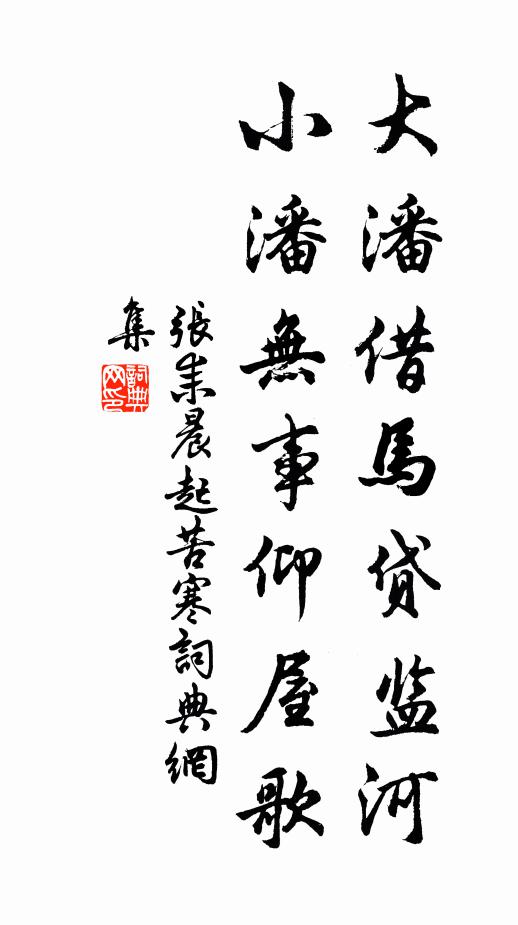 大潘借馬貸监河
小潘無事仰屋歌
張耒晨起苦寒詞典網
集
詞典网印